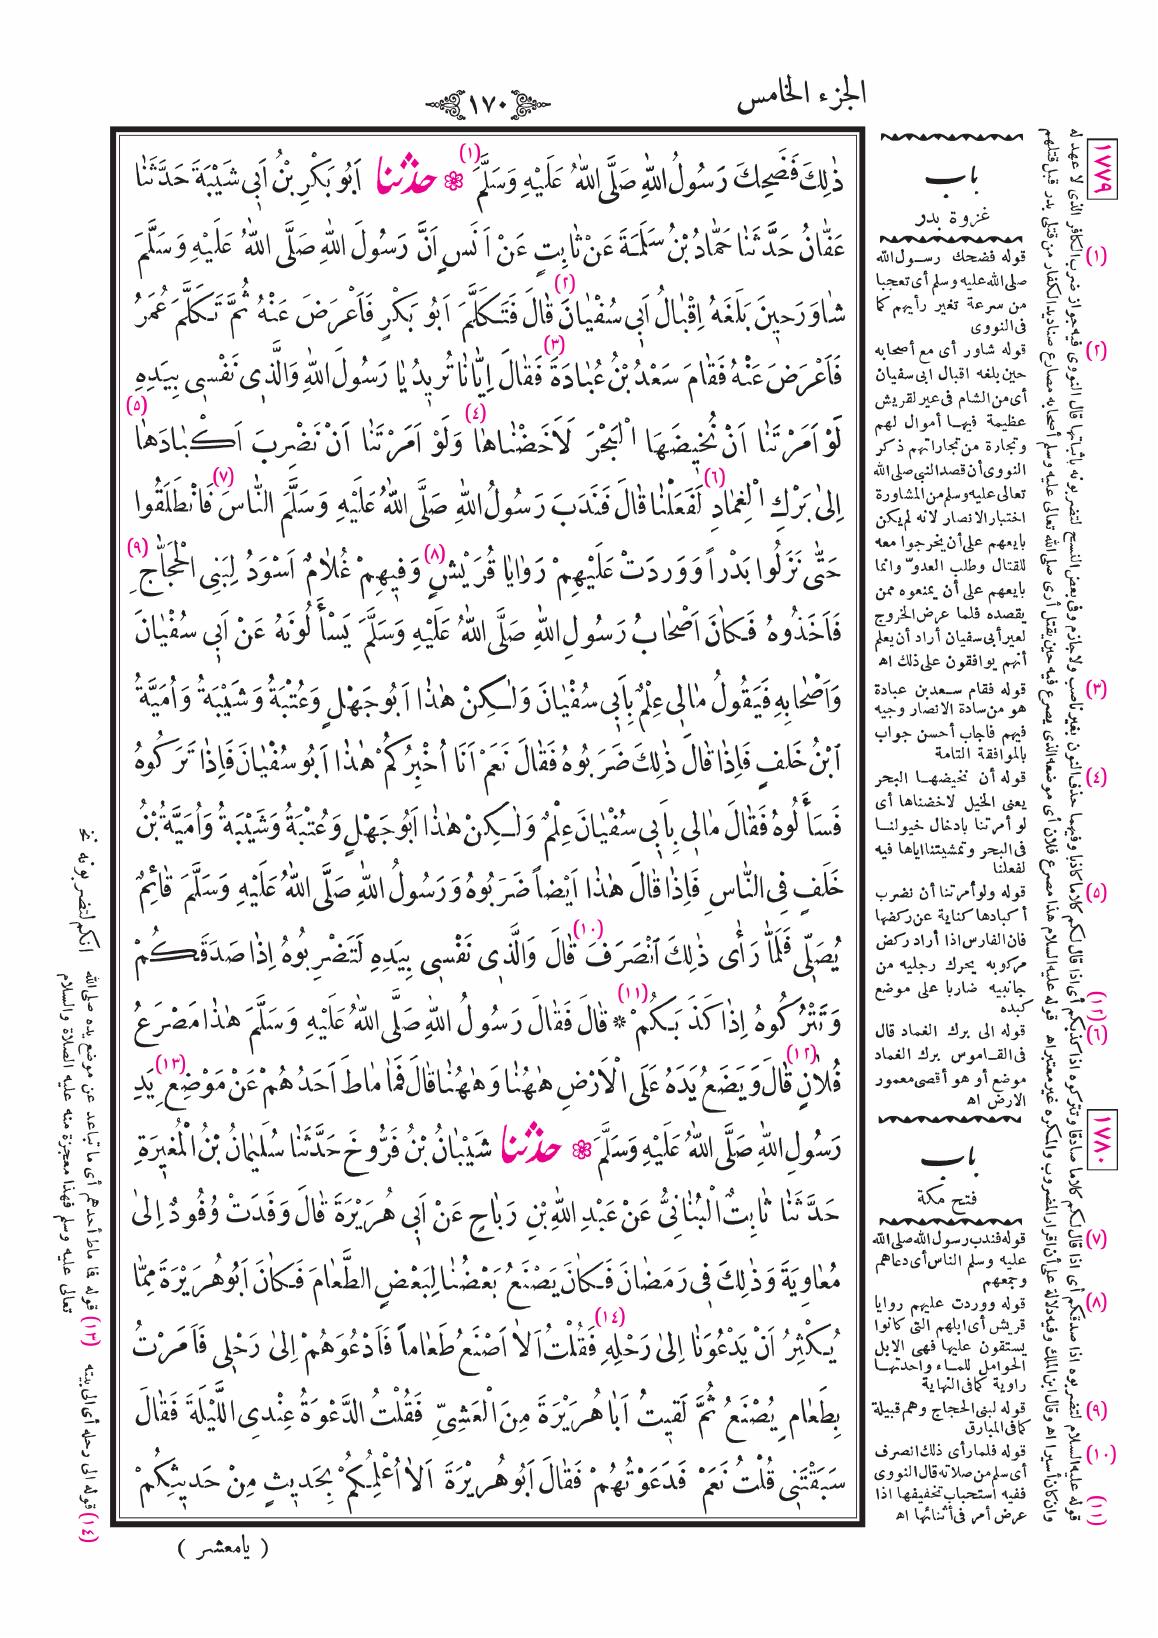 الجزء الخامس
١٧٠
ذٰلِكَ فَضَحِكَ رَسُولُ اللهِ صَلَّى اللهُ عَلَيْهِ وَسَلَّمَ (١) ❁ حدثنا اَبُو بَكْرِ بْنُ اَبِى شَيْبَةَ حَدَّثَنَا
عَفَّانُ حَدَّثَنَا حَمَّادُ بْنُ سَلَمَةَ عَنْ ثَابِتٍ عَنْ اَنَسٍ اَنَّ رَسُولَ اللهِ صَلَّى اللهُ عَلَيْهِ وَسَلَّمَ
شَاوَرَ حِينَ بَلَغَهُ اِقْبَالُ اَبِى سُفْيَانَ (٢) قَالَ فَتَكَلَّمَ اَبُو بَكْرٍ فَاَعْرَضَ عَنْهُ ثُمَّ تَكَلَّمَ عُمَرُ
فَاَعْرَضَ عَنْهُ فَقَامَ سَعْدُ بْنُ عُبَادَةَ (٣) فَقَالَ اِيَّانَا تُرِيدُ يَا رَسُولَ اللهِ وَالَّذِى نَفْسِى بِيَدِهِ
لَوْ اَمَرْتَنَا اَنْ نُخِيضَهَا الْبَحْرَ لَاَخَضْنَاهَا (٤) وَلَوْ اَمَرْتَنَا اَنْ نَضْرِبَ اَكْبَادَهَا (٥)
اِلٰى بَرْكِ الْغِمَادِ (٦) لَفَعَلْنَا قَالَ فَنَدَبَ رَسُولُ اللهِ صَلَّى اللهُ عَلَيْهِ وَسَلَّمَ النَّاسَ (٧) فَانْطَلَقُوا
حَتّٰى نَزَلُوا بَدْراً وَوَرَدَتْ عَلَيْهِمْ رَوَايَا قُرَيْشٍ (٨) وَفِيهِمْ غُلَامٌ اَسْوَدُ لِبَنِى الْحَجَّاجِ (٩)
فَاَخَذُوهُ فَكَانَ اَصْحَابُ رَسُولِ اللهِ صَلَّى اللهُ عَلَيْهِ وَسَلَّمَ يَسْأَلُونَهُ عَنْ اَبِى سُفْيَانَ
وَاَصْحَابِهِ فَيَقُولُ مَالِى عِلْمٌ بِاَبِى سُفْيَانَ وَلٰكِنْ هٰذَا اَبُو جَهْلٍ وَعُتْبَةُ وَشَيْبَةُ وَاُمَيَّةُ
ابْنُ خَلَفٍ فَاِذَا قَالَ ذٰلِكَ ضَرَبُوهُ فَقَالَ نَعَمْ اَنَا اُخْبِرُكُمْ هٰذَا اَبُو سُفْيَانَ فَاِذَا تَرَكُوهُ
فَسَأَلُوهُ فَقَالَ مَالِى بِاَبِى سُفْيَانَ عِلْمٌ وَلٰكِنْ هٰذَا اَبُو جَهْلٍ وَعُتْبَةُ وَشَيْبَةُ وَاُمَيَّةُ بْنُ
خَلَفٍ فِى النَّاسِ فَاِذَا قَالَ هٰذَا اَيْضاً ضَرَبُوهُ وَرَسُولُ اللهِ صَلَّى اللهُ عَلَيْهِ وَسَلَّمَ قَائِمٌ
يُصَلِّى فَلَمَّا رَأٰى ذٰلِكَ انْصَرَفَ (١٠) قَالَ وَالَّذِى نَفْسِى بِيَدِهِ لَتَضْرِبُوهُ اِذَا صَدَقَكُمْ
وَتَتْرُكُوهُ اِذَا كَذَبَكُمْ (١١) * قَالَ فَقَالَ رَسُولُ اللهِ صَلَّى اللهُ عَلَيْهِ وَسَلَّمَ هٰذَا مَصْرَعُ
فُلَانٍ (١٢) قَالَ وَيَضَعُ يَدَهُ عَلَى الْاَرْضِ هٰهُنَا وَهٰهُنَا قَالَ فَمَا مَاطَ اَحَدُهُمْ عَنْ مَوْضِعِ (١٣) يَدِ
رَسُولِ اللهِ صَلَّى اللهُ عَلَيْهِ وَسَلَّمَ ❁ حدثنا شَيْبَانُ بْنُ فَرُّوخَ حَدَّثَنَا سُلَيْمَانُ بْنُ الْمُغِيرَةِ
حَدَّثَنَا ثَابِتٌ الْبُنَانِىُّ عَنْ عَبْدِ اللهِ بْنِ رَبَاحٍ عَنْ اَبِى هُرَيْرَةَ قَالَ وَفَدَتْ وُفُودٌ اِلٰى
مُعَاوِيَةَ وَذٰلِكَ فِى رَمَضَانَ فَكَانَ يَصْنَعُ بَعْضُنَا لِبَعْضٍ الطَّعَامَ فَكَانَ اَبُو هُرَيْرَةَ مِمَّا
يُكْثِرُ اَنْ يَدْعُوَنَا اِلٰى رَحْلِهِ (١٤) فَقُلْتُ اَلَا اَصْنَعُ طَعَاماً فَاَدْعُوَهُمْ اِلٰى رَحْلِى فَاَمَرْتُ
بِطَعَامٍ يُصْنَعُ ثُمَّ لَقِيتُ اَبَا هُرَيْرَةَ مِنَ الْعَشِىِّ فَقُلْتُ الدَّعْوَةُ عِنْدِى اللَّيْلَةَ فَقَالَ
سَبَقْتَنِى قُلْتُ نَعَمْ فَدَعَوْتُهُمْ فَقَالَ اَبُو هُرَيْرَةَ اَلَا اُعْلِمُكُمْ بِحَدِيثٍ مِنْ حَدِيثِكُمْ
( يا معشر )
١٧٧٩
باب
غزوة بدر
(١) قوله فضحك رسول الله
صلى الله عليه وسلم أى تعجبا
من سرعة تغير رأيهم كما
فى النووى
(٢) قوله شاور أى مع أصحابه
حين بلغه اقبال ابى سفيان
أى من الشام فى عير لقريش
عظيمة فيها أموال لهم
وتجارة من تجاراتهم ذكر
النووى أن قصد النبى صلى الله
تعالى عليه وسلم من المشاورة
اختبار الانصار لانه لم يكن
بايعهم على أن يخرجوا معه
للقتال وطلب العدوّ وانما
بايعهم على أن يمنعوه ممن
يقصده فلما عرض الخروج
لعير أبى سفيان أراد أن يعلم
أنهم يوافقون على ذلك اه
(٣) قوله فقام سعد بن عبادة
هو من سادة الانصار وجيه
فيهم فاجاب أحسن جواب
بالموافقة التامة
(٤) قوله أن نخيضها البحر
يعنى الخيل لاخضناها أى
لو أمرتنا بادخال خيولنا
فى البحر وتمشيتنا اياها فيه
لفعلنا
(٥) قوله ولو أمرتنا أن نضرب
أكبادها كناية عن ركضها
فان الفارس اذا أراد ركض
مركوبه يحرك رجليه من
جانبيه ضاربا على موضع
كبده
(٦) قوله الى برك الغماد قال
فى القاموس برك الغماد
موضع أو هو أقصى معمور
الارض اه
١٧٨٠
باب
فتح مكة
(٧) قوله فندب رسول الله صلى الله
عليه وسلم الناس أى دعاهم
وجمعهم
(٨) قوله ووردت عليهم روايا
قريش أى ابلهم التى كانوا
يستقون عليها فهى الابل
الحوامل للماء واحدتها
راوية كما فى النهاية
(٩) قوله لبنى الحجاج وهم قبيلة
كما فى المبارق
(١٠) قوله فلما رأى ذلك انصرف
أى سلم من صلاته قال النووى
ففيه استحباب تخفيفها اذا
عرض أمر فى أثنائها اه
(١١) قوله عليه السلام لتضربوه اذا صدقكم أى اذا قال لكم كلاما صادقا وتتركوه اذا كذبكم أى اذا قال لكم كلاما كاذبا وفيهما حذف النون بغير ناصب ولا جازم وفى بعض النسخ لتضربونه باثباتها قال النووى فيه جواز ضرب الكافر الذى لا عهد له
وان كان أسيرا اه وقال ابن الملك وفيه دلالة على أن اقرار المضروب والمكره غير معتبر اه (١٢) قوله عليه السلام هذا مصرع فلان أى موضعه الذى يصرع فيه حين يقتل أرى صلى الله تعالى عليه وسلم أصحابه مصارع صناديد الكفار من قتلى بدر قبل قتلهم
انكم لتضربونه نخ
(١٣) قوله فما ماط أحدهم أى ما تباعد عن موضع يده صلى الله
تعالى عليه وسلم فهذا معجزة منه عليه الصلاة والسلام
(١٤) قوله الى رحله أى الى بيته